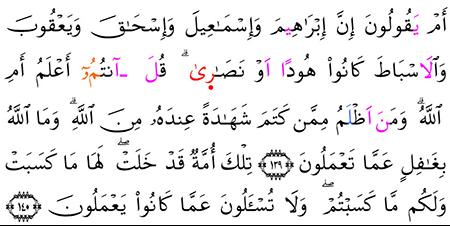 أَمْ يَقُولُونَ إِنَّ إِبْرَٰهِيمَ وَإِسْمَٰعِيلَ وَإِسْحَٰقَ وَيَعْقُوبَ
وَٱلَاسْبَاطَ كَانُوا۟ هُودًا اَوْ نَصَٰرٜىٰ ۗ قُلَ ـآنتُمُۥٓ أَعْلَمُ أَمِ
ٱللَّهُ ۗ وَمَنَ اَظْلَمُ مِمَّن كَتَمَ شَهَٰدَةً عِندَهُۥ مِنَ ٱللَّهِ ۗ وَمَا ٱللَّهُ
بِغَٰفِلٍ عَمَّا تَعْمَلُونَ ﴿١٣٩﴾ تِلْكَ أُمَّةٌ قَدْ خَلَتْ ۖ لَهَا مَا كَسَبَتْ
وَلَكُم مَّا كَسَبْتُمْ ۖ وَلَا تُسْـَٔلُونَ عَمَّا كَانُوا۟ يَعْمَلُونَ ﴿١٤٠﴾